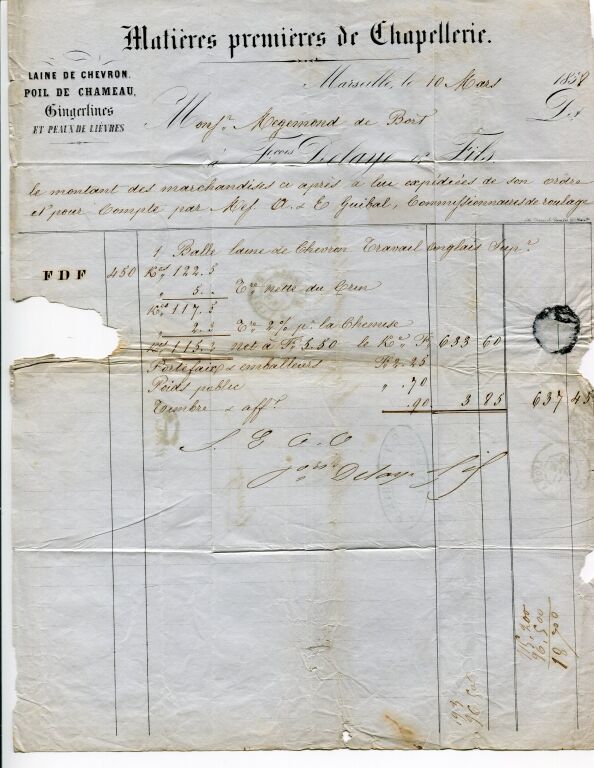 Matières premières de Chapellerie.
LAINE DE CHEVRON.
POIL DE CHAMEAU,
Gingerlines
ET PEAUX DE LIÈVRES
Marseille, le 10 Mars 1858
Monsr. Megemond de Bort Dt
à Fcois Delaye & Fils
le montant des marchandises ci après à lui expédiées de son ordre
et pour Compte par Mrs O. & E Guibal, Commissionnaires de roulage
1 Balle laine de Chevron Travail anglais Supre.
FDF 450 Kos 122.5
5.. Tre nette du Crin
Kos 117.5
2.3 Tre 2% pr. la Chemise
Kos 115.2 net à F. 5.50 le Ko F. 633 60
Portefaix & emballeurs F 2.25
Poids public " .70
Timbre & afft. .90 3 85 637 45
S. E & O
Fcois Delaye Fils